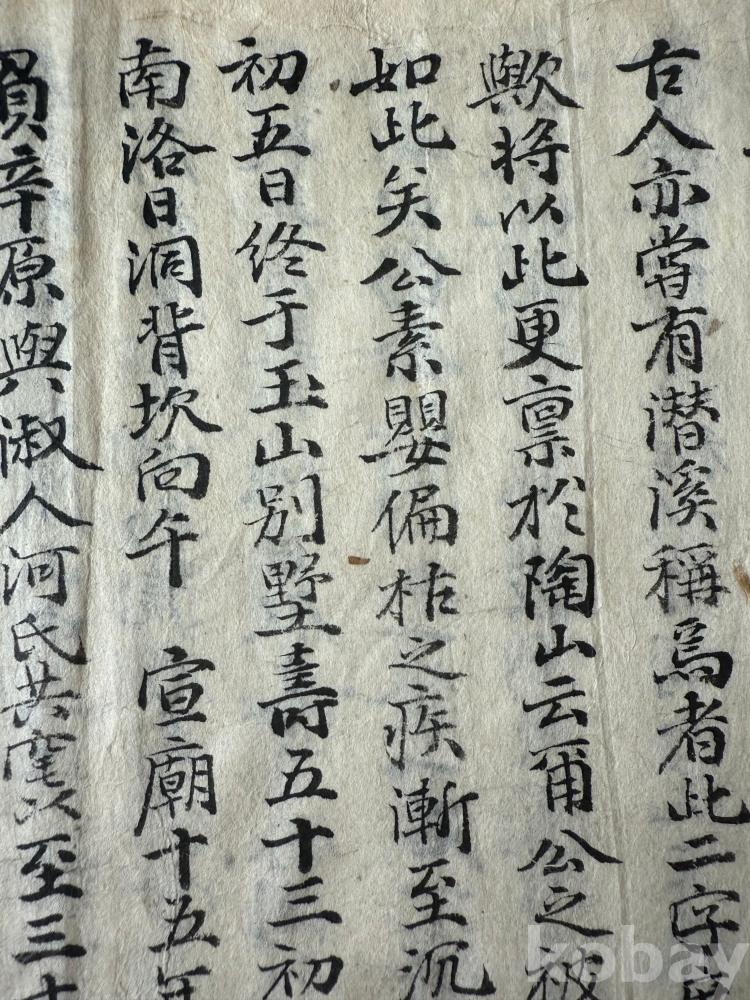 古人亦嘗有潛溪稱焉者此二字
歟將以此更禀於陶山云爾公之被
如此矣公素嬰偏枯之疾漸至沉
初五日終于玉山別墅壽五十三初
南洛日洞背坎向午 宣廟十五年
原與淑人河氏共窆以至三十
kobay